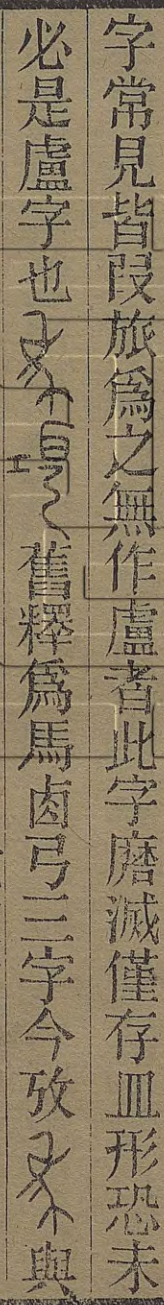 字常見皆叚旅爲之無作盧者此字磨滅僅存皿形恐未
必是盧字也舊釋爲馬鹵弓三字今攷與